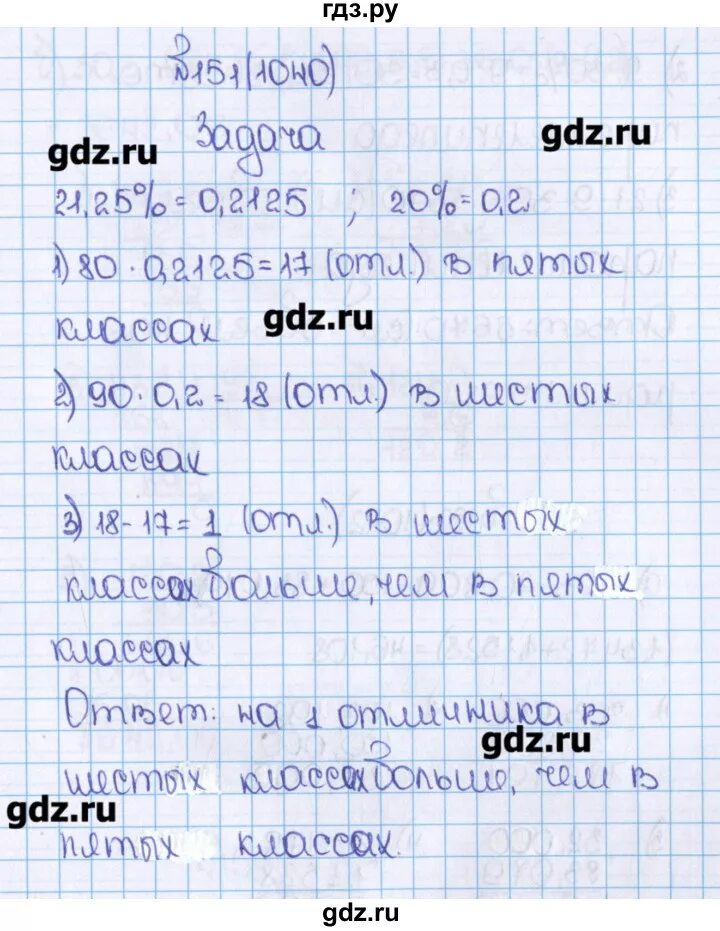 гдз.ру
№151(1040)
Задача
gdz.ru
gdz.ru
21,25% = 0,2125 ; 20% = 0,2
1) 80 · 0,2125 = 17 (отл.) в пятых
классах
gdz.ru
2) 90 · 0,2 = 18 (отл.) в шестых
классах
3) 18 - 17 = 1 (отл.) в шестых
классах больше, чем в пятых
классах
Ответ: на 1 отличника в
gdz.ru
шестых классах больше, чем в
gdz.ru
пятых классах.
gdz.ru